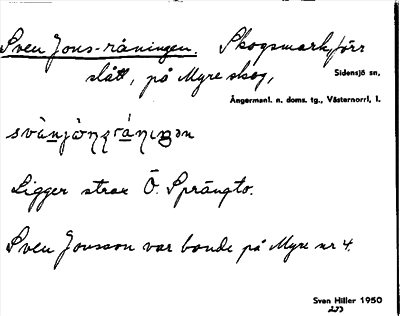 Sven Jons-råningen. Skogsmark, förr
slått, på Myre skog,
Sidensjö sn,
Ångermanl. n. doms. tg., Västernorrl. l.
Ligger strax Ö. Sprängto.
Sven Jonsson var bonde på Myre nr 4.
Sven Hiller 1950
223